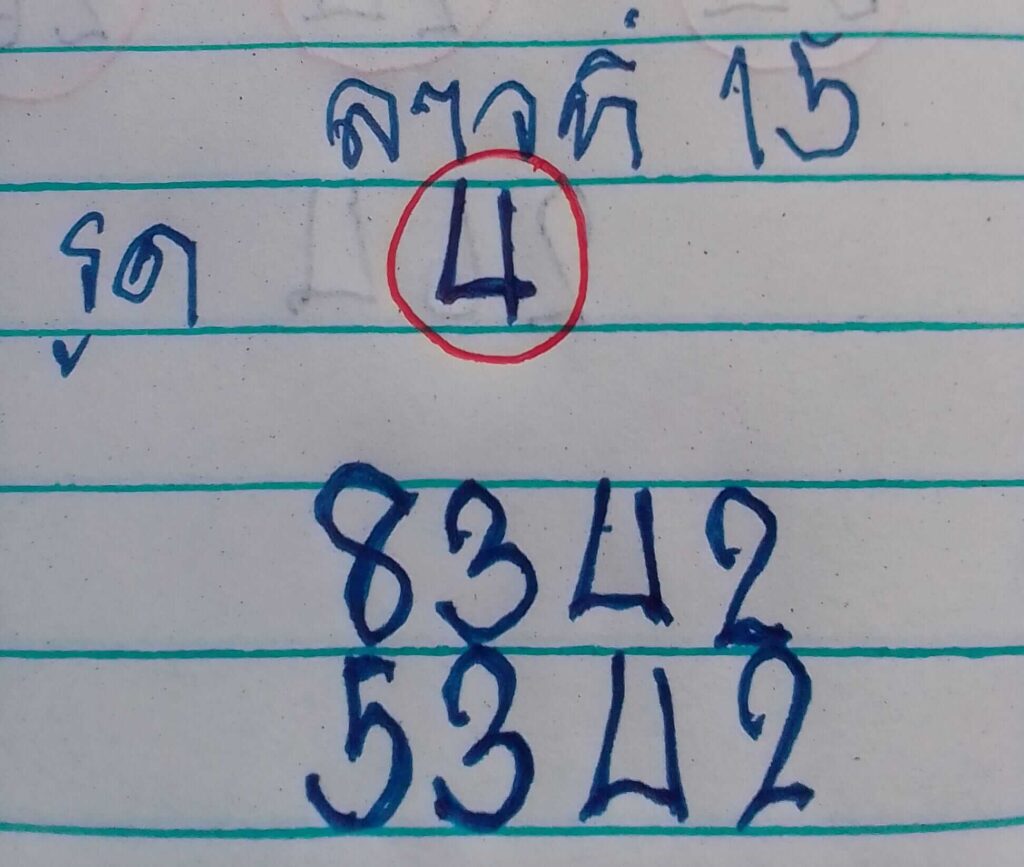 ลาวที่ 15
รูด 4
8342
5342